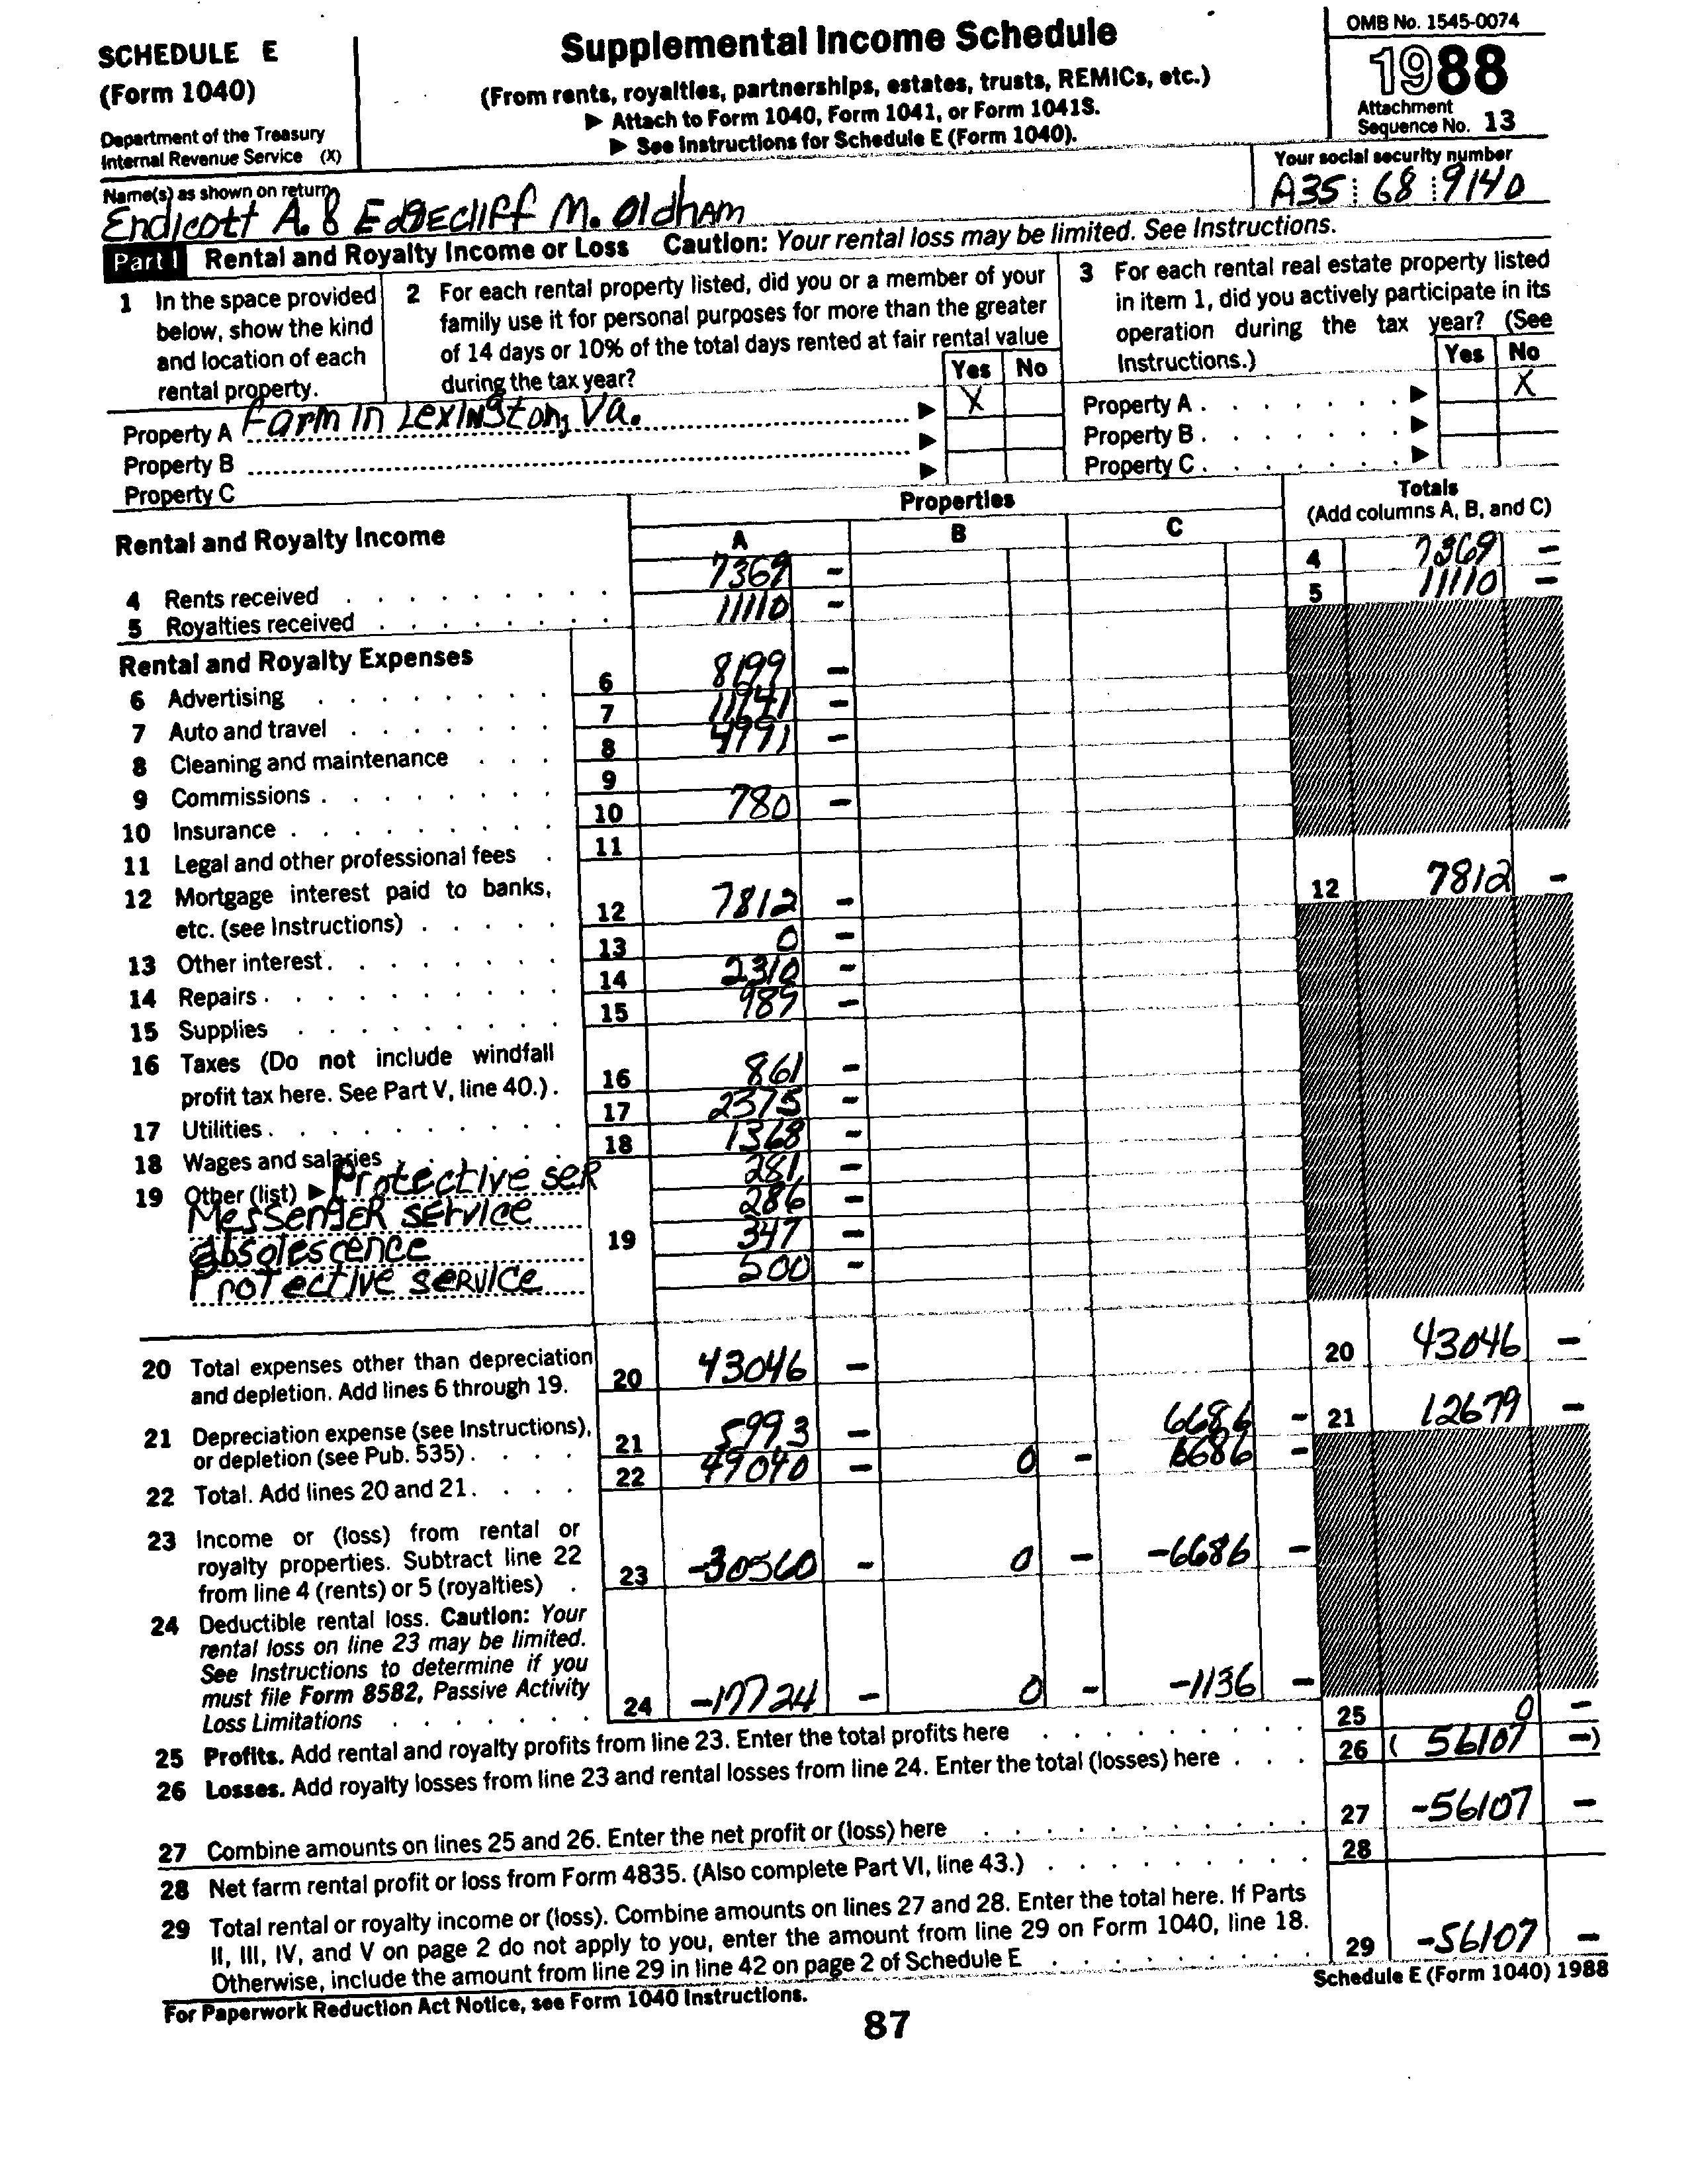 SCHEDULE E
(Form 1040)
Department of the Treasury
Internal Revenue Service (X)
Supplemental Income Schedule
(From rents, royalties, partnerships, estates, trusts, REMICs, etc.)
▶ Attach to Form 1040, Form 1041, or Form 1041S.
▶ See Instructions for Schedule E (Form 1040).
OMB No. 1545-0074
1988
Attachment
Sequence No. 13
Name(s) as shown on return
Endicott A. & Edgecliff M. Oldham
Your social security number
A35 68 9140
Part I Rental and Royalty Income or Loss Caution: Your rental loss may be limited. See Instructions.
1 In the space provided
below, show the kind
and location of each
rental property.
2 For each rental property listed, did you or a member of your
family use it for personal purposes for more than the greater
of 14 days or 10% of the total days rented at fair rental value
during the tax year?
Yes No
3 For each rental real estate property listed
in item 1, did you actively participate in its
operation during the tax year? (See
Instructions.)
Yes No
Property A Farm in Lexington, Va. ▶ X
Property B ▶
Property C ▶
Property A ▶ X
Property B ▶
Property C ▶
Rental and Royalty Income
Properties
A B C
Totals
(Add columns A, B, and C)
4 Rents received 7369 – 4 7369 –
5 Royalties received 11110 – 5 11110 –
Rental and Royalty Expenses
6 Advertising 6 8199 –
7 Auto and travel 7 11941 –
8 Cleaning and maintenance 8 4991 –
9 Commissions 9
10 Insurance 10 780 –
11 Legal and other professional fees 11
12 Mortgage interest paid to banks,
etc. (see Instructions) 12 7812 – 12 7812 –
13 Other interest 13 0 –
14 Repairs 14 2310 –
15 Supplies 15 985 –
16 Taxes (Do not include windfall
profit tax here. See Part V, line 40.) 16 861 –
17 Utilities 17 2375 –
18 Wages and salaries 18 1368 –
19 Other (list) ▶ Protective ser 281 –
Messenger service 286 –
absolescence 19 347 –
Protective service 500 –
20 Total expenses other than depreciation
and depletion. Add lines 6 through 19. 20 43046 – 20 43046 –
21 Depreciation expense (see Instructions),
or depletion (see Pub. 535) 21 5993 – 6686 – 21 12679 –
22 Total. Add lines 20 and 21 22 49040 – 0 – 6686 –
23 Income or (loss) from rental or
royalty properties. Subtract line 22
from line 4 (rents) or 5 (royalties) 23 -30560 – 0 – -6686 –
24 Deductible rental loss. Caution: Your
rental loss on line 23 may be limited.
See Instructions to determine if you
must file Form 8582, Passive Activity
Loss Limitations 24 -17724 – 0 – -1136 –
25 Profits. Add rental and royalty profits from line 23. Enter the total profits here 25 0 –
26 Losses. Add royalty losses from line 23 and rental losses from line 24. Enter the total (losses) here 26 ( 56107 –)
27 Combine amounts on lines 25 and 26. Enter the net profit or (loss) here 27 -56107 –
28 Net farm rental profit or loss from Form 4835. (Also complete Part VI, line 43.) 28
29 Total rental or royalty income or (loss). Combine amounts on lines 27 and 28. Enter the total here. If Parts
II, III, IV, and V on page 2 do not apply to you, enter the amount from line 29 on Form 1040, line 18.
Otherwise, include the amount from line 29 in line 42 on page 2 of Schedule E 29 -56107 –
For Paperwork Reduction Act Notice, see Form 1040 Instructions.
Schedule E (Form 1040) 1988
87